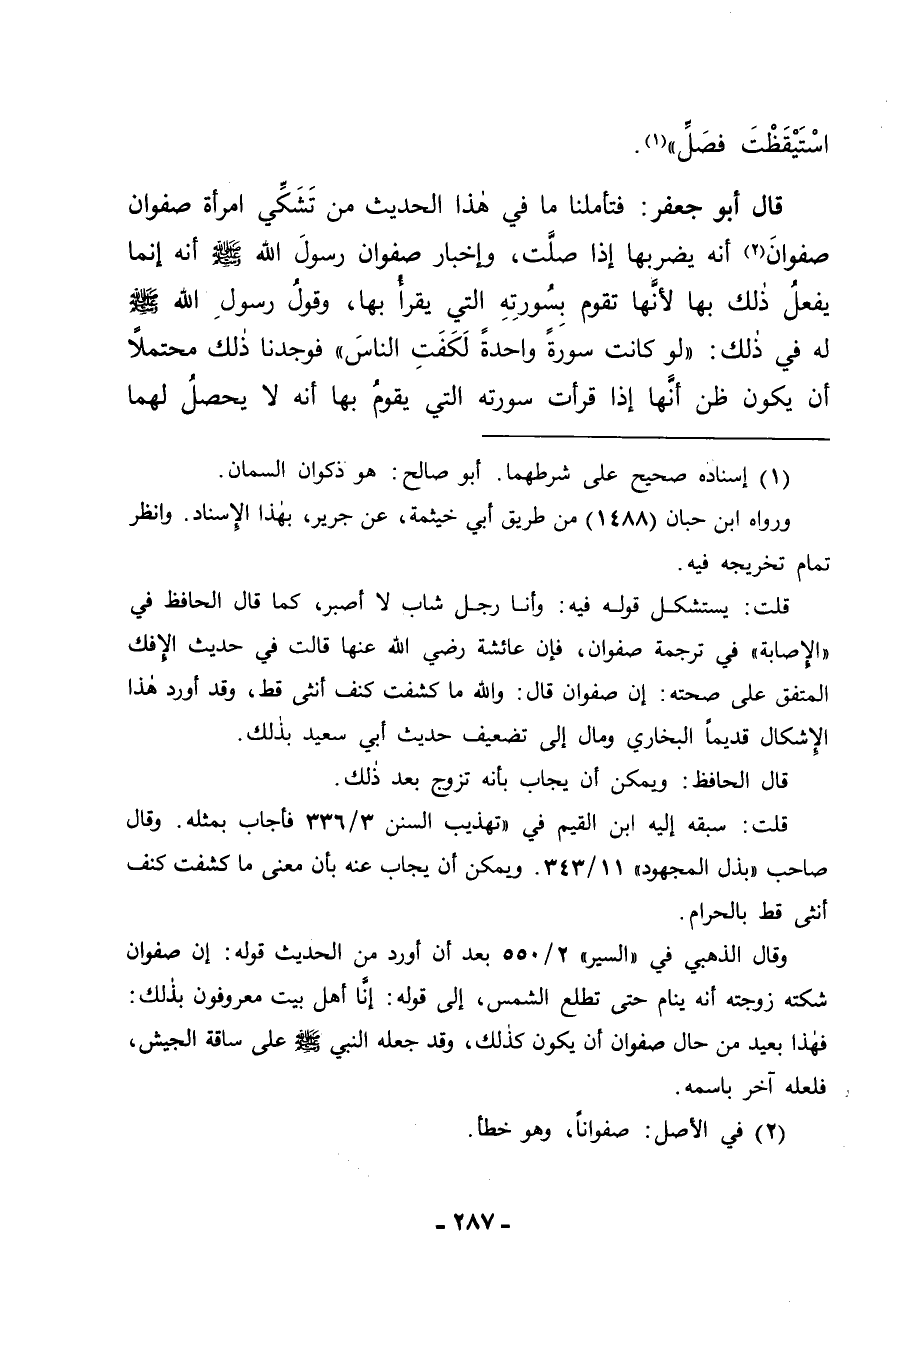 اسْتَيْقَظْتَ فصَلِّ»(١).
قال أبو جعفر: فتأملنا ما في هٰذا الحديث من تَشَكِّي امرأة صفوان
صفوانَ(٢) أنه يضربها إذا صلَّت، وإخبار صفوان رسولَ الله ﷺ أنه إنما
يفعلُ ذٰلك بها لأنَّها تقوم بِسُورتِهِ التي يقرأُ بها، وقولُ رسولِ الله ﷺ
له في ذٰلك: «لو كانت سورةً واحدةً لَكَفَتِ الناسَ» فوجدنا ذٰلك محتملاً
أن يكون ظن أنَّها إذا قرأت سورته التي يقومُ بها أنه لا يحصلُ لهما
(١) إسناده صحيح على شرطهما. أبو صالح: هو ذكوان السمان.
ورواه ابن حبان (١٤٨٨) من طريق أبي خيثمة، عن جرير، بهٰذا الإسناد. وانظر
تمام تخريجه فيه.
قلت: يستشكل قوله فيه: وأنا رجل شاب لا أصبر، كما قال الحافظ في
«الإصابة» في ترجمة صفوان، فإن عائشة رضي الله عنها قالت في حديث الإفك
المتفق على صحته: إن صفوان قال: والله ما كشفت كنف أنثى قط، وقد أورد هٰذا
الإشكال قديماً البخاري ومال إلى تضعيف حديث أبي سعيد بذٰلك.
قال الحافظ: ويمكن أن يجاب بأنه تزوج بعد ذٰلك.
قلت: سبقه إليه ابن القيم في «تهذيب السنن ٣٣٦/٣ فأجاب بمثله. وقال
صاحب «بذل المجهود» ٣٤٣/١١. ويمكن أن يجاب عنه بأن معنى ما كشفت كنف
أنثى قط بالحرام.
وقال الذهبي في «السير» ٥٥٠/٢ بعد أن أورد من الحديث قوله: إن صفوان
شكته زوجته أنه ينام حتى تطلع الشمس، إلى قوله: إنَّا أهل بيت معروفون بذٰلك:
فهٰذا بعيد من حال صفوان أن يكون كذٰلك، وقد جعله النبي ﷺ على ساقة الجيش،
فلعله آخر باسمه.
(٢) في الأصل: صفواناً، وهو خطأ.
- ٢٨٧ -